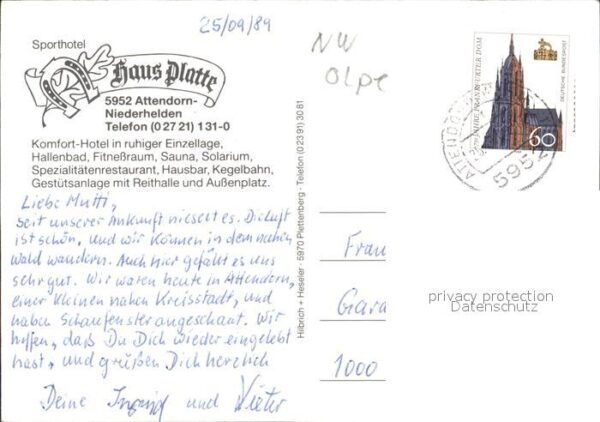 25/09/89
NW
Olpe
Sporthotel
Haus Platte
5952 Attendorn-
Niederhelden
Telefon (0 27 21) 1 31-0
Komfort-Hotel in ruhiger Einzellage,
Hallenbad, Fitneßraum, Sauna, Solarium,
Spezialitätenrestaurant, Hausbar, Kegelbahn,
Gestütsanlage mit Reithalle und Außenplatz.
Liebe Mutti,
seit unserer Ankunft nieselt es. Die Luft
ist schön, und wir können in dem nahen
Wald wandern. Auch hier gefällt es uns
sehr gut. Wir waren heute in Attendorn,
einer kleinen nahen Kreisstadt, und
haben Schaufenster angeschaut. Wir
hoffen, daß Du Dich wieder eingelebt
hast, und grüßen Dich herzlich
Deine Ingrid und Dieter
Hilbrich + Heseler · 5970 Plettenberg · Telefon (0 23 91) 30 81
FRANKFURTER DOM
DEUTSCHE BUNDESPOST
60
ATTENDORN
5952
Frau
Gara
1000
privacy protection
Datenschutz